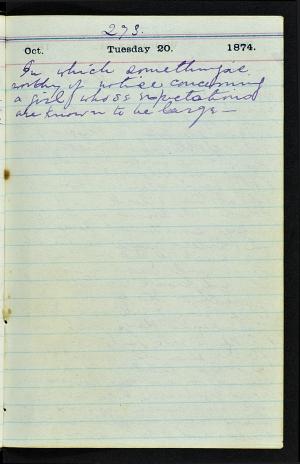 293.
Oct. Tuesday 20. 1874.
In which something is
worthy of notice concerning
a girl whose expectations
are known to be large —